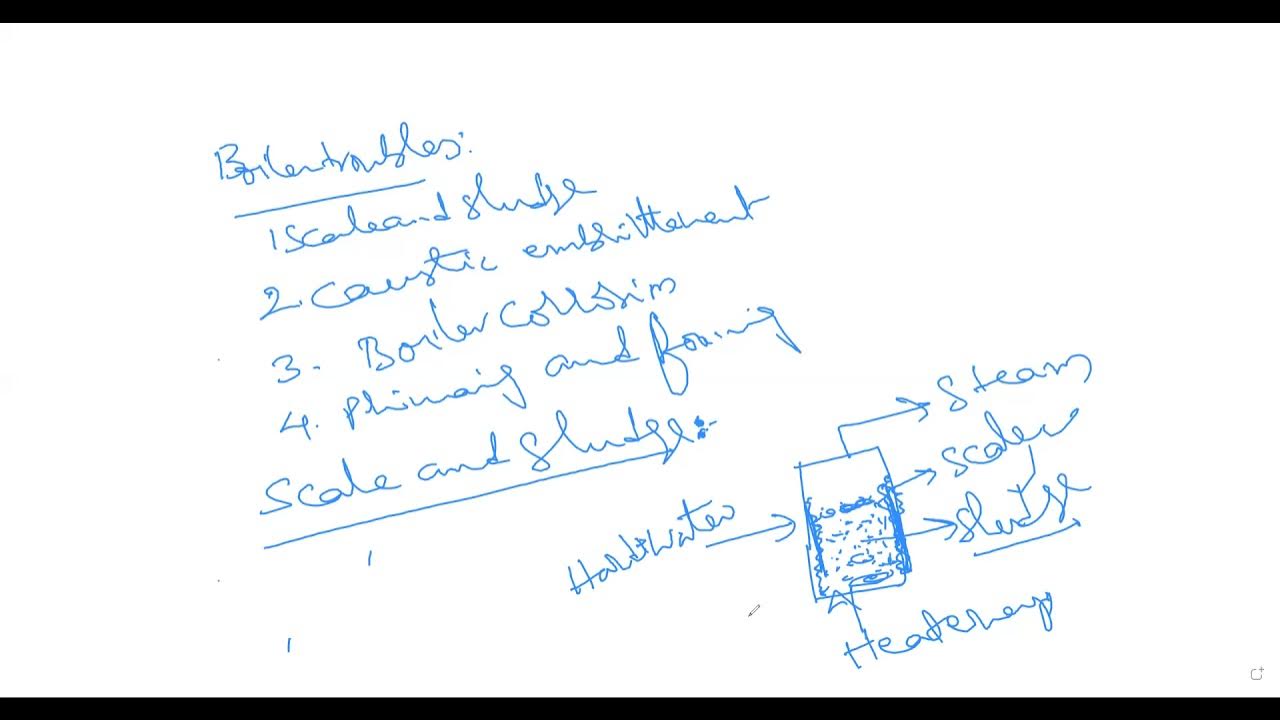 Boiler troubles:
1 Scale and sludge
2. Caustic embrittlement
3. Boiler corrosion
4. Priming and foaming
Scale and sludge:-
Steam
Scale
Sludge
Hard water
Heat energy